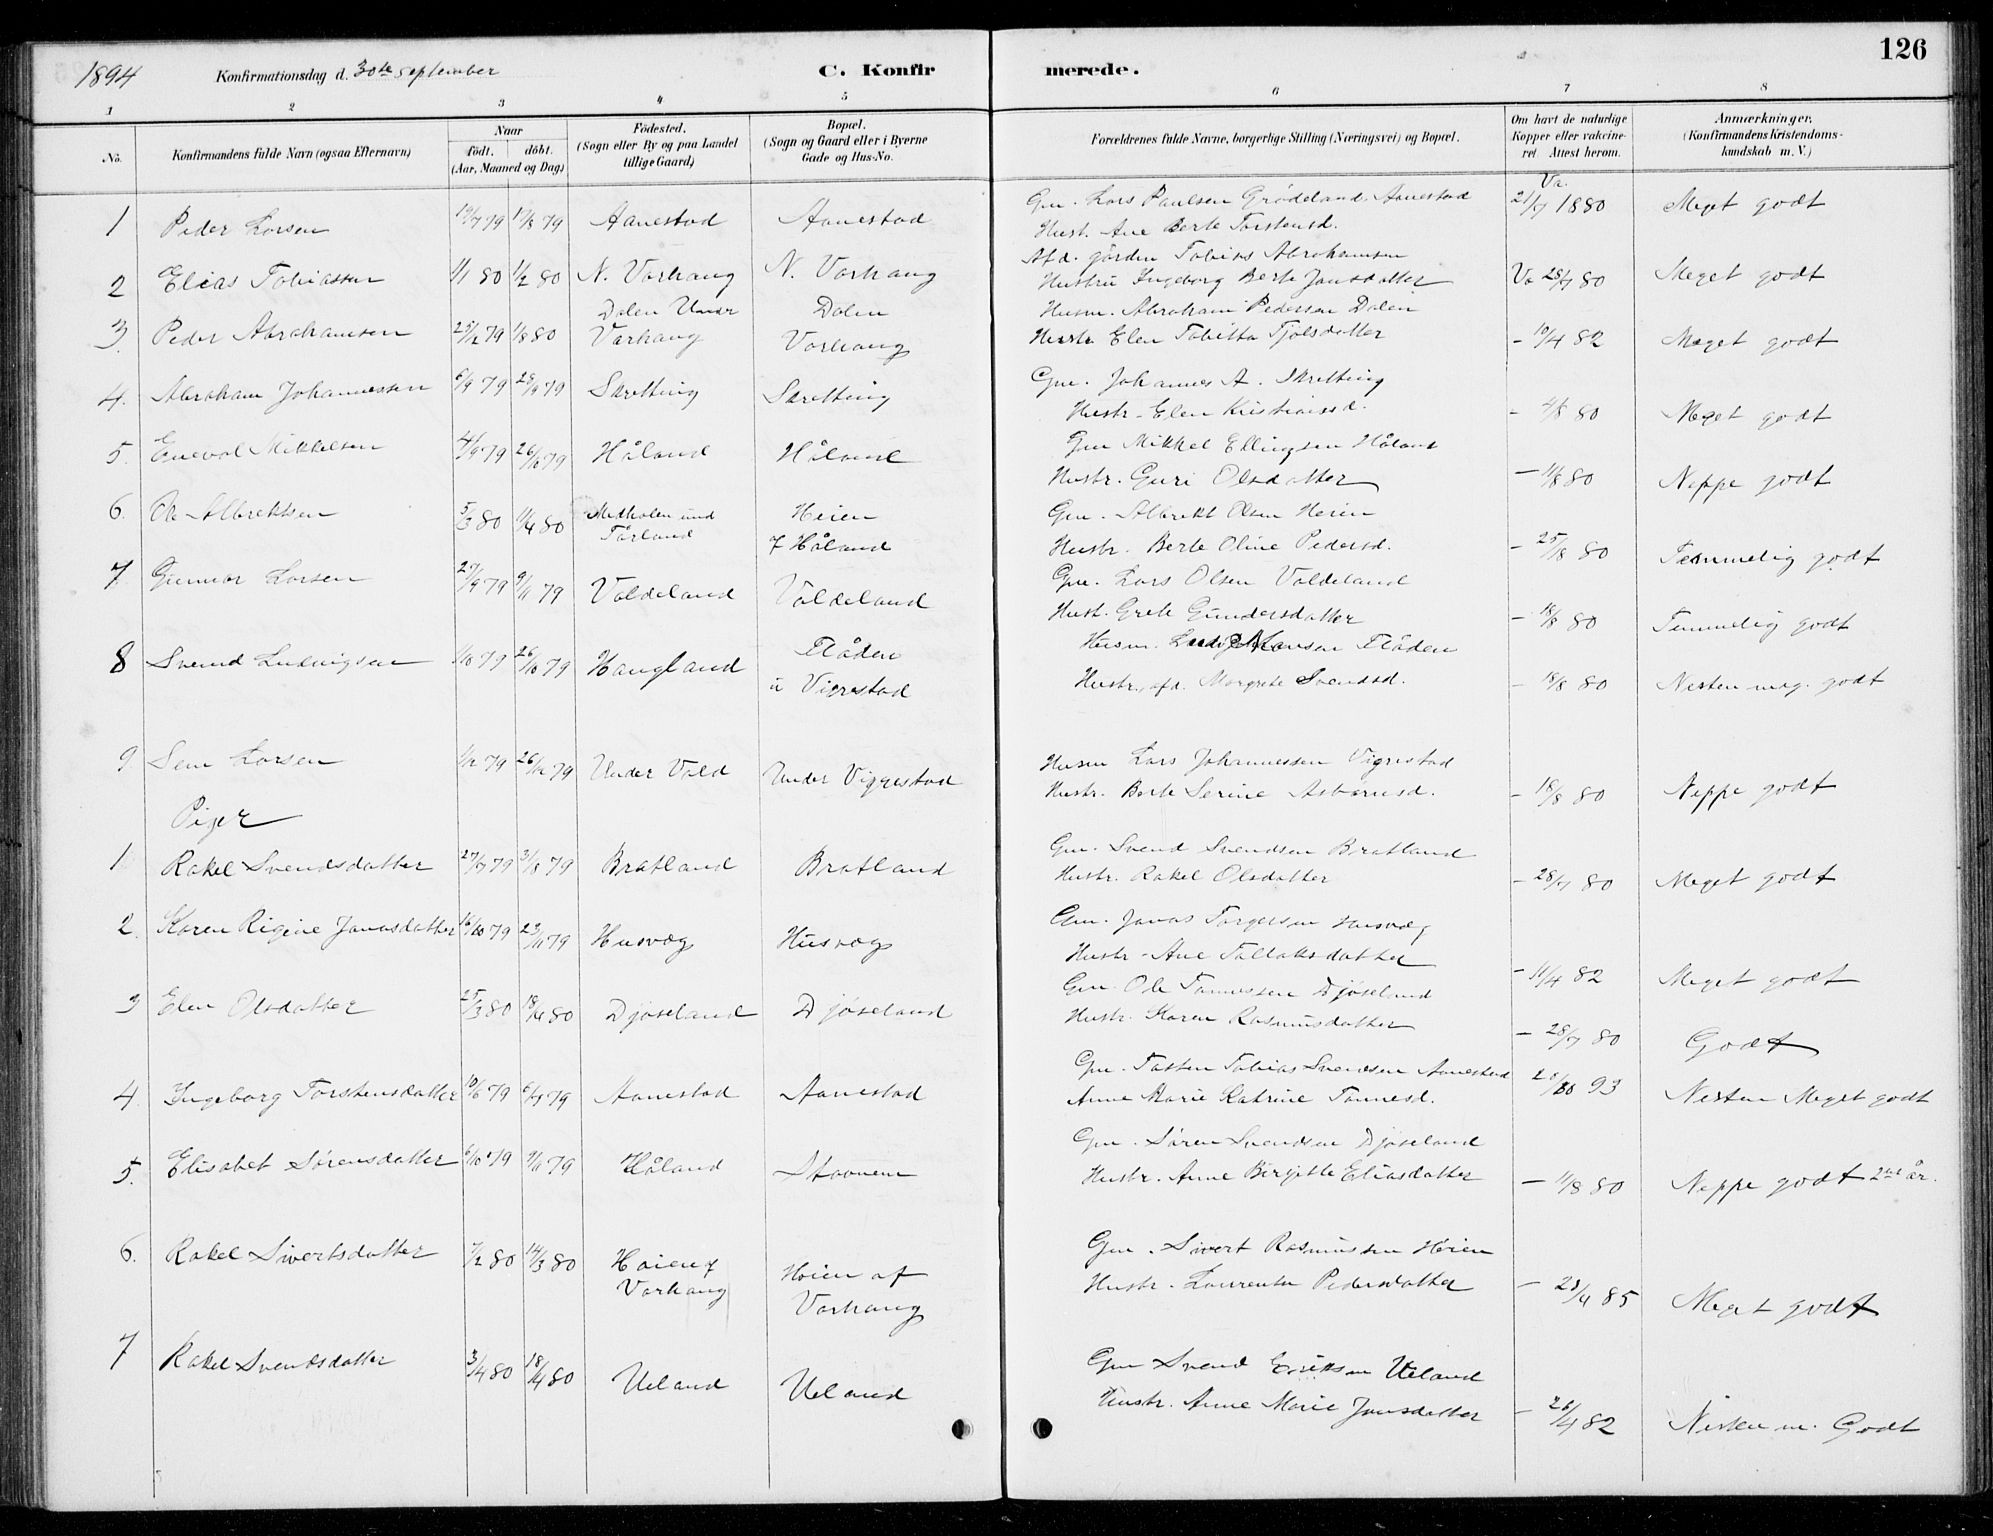 126
1894 Konfirmationsdag d. 30te September C. Konfirmerede.
1 2 3 4 5 6 7 8
No. Konfirmandens fulde Navn (ogsaa Efternavn) Naar födt. döbt. (Aar, Maaned og Dag) Födested. (Sogn eller By og paa Landet tillige Gaard) Bopæl. (Sogn og Gaard eller i Byerne Gade og Hus-No. Forældrenes fulde Navne, borgerlige Stilling (Næringsvei) og Bopæl. Om havt de naturlige Kopper eller vaccineret. Attest herom. Anmærkninger. (Konfirmandens Kristendomskundskab m. V.)
1 Peder Larsen 19/7 79 17/8 79 Aanestad Aanestad Gm. Lars Paulsen Grödeland Aanestad Hust. Ane Berte Torstensd. Va. 21/7 1880 Meget godt
2 Elias Tobiassen 1/1 80 1/2 80 N. Varhaug N. Varhaug Afd. gårdm Tobias Abrahamsen Hustru Ingeborg Berte Jonsdatter Va 28/7 80 Meget godt
3. Peder Abrahamsen 25/12 79 1/8 80 Dalen Under Varhaug Dalen Varhaug Husm. Abraham Pedersen Dalen Hustr. Elen Tobitta Tjölsdatter - 10/4 82 Meget godt
4. Abraham Johannessen 6/9 79 28/9 79 Skretting Skretting Gm. Johannes A. Skretting Hustr. Elen Kristiansd. - 4/8 80 Meget godt
5. Eneval Mikkelsen 4/9 79 26/10 79 Håland Håland Gm Mikkel Ellingsen Håland Hustr. Guri Olsdatter - 11/8 80 Neppe godt
6. Ole Albrektsen 5/3 80 11/4 80 Medholen und Tårland Heien af Håland Gm. Albrekt Olsen Heien Hustr. Berte Oline Pedersd. - 25/8 80 Temmelig godt
7. Gunnar Larsen 27/9 79 9/11 79 Valdeland Valdeland Gm. Lars Olsen Valdeland Hust. Grete Gundersdatter - 18/8 80 Temmelig godt
8 Svend Ludvigsen 1/10 79 26/10 79 Haugland Flåden u Vigrestad Husm. Hansen Flåden Hustr., afd. Margrete Svendsd. - 18/8 80 Nesten meg. godt
9 Sem Larsen 1/12 79 26/12 79 Under Vold Under Viggestad Husm Lars Johannessen Vigrestad Hustr. Berte Serine Asbörnsd. - 18/8 80 Neppe godt
Piger
1 Rakel Svendsdatter 27/7 79 31/8 79 Bratland Bratland Gm. Svend Svendsen Bratland Hustr. Rakel Olsdatter - 28/7 80 Meget godt
2. Karen Rigine Jonasdatter 16/10 79 23/11 79 Husvæg Husvæg Gm. Jonas Torgersen Husvæg Hustr. Ane Tollaksdatter - 11/4 82 Meget godt
3 Elen Olsdatter 25/3 80 18/4 80 Djöseland Djöseland Gm. Ole Tönnessen Djöseland Hustr. Karen Rasmusdatter - 28/7 80 Godt
4. Ingeborg Torstensdatter 10/6 79 6/7 79 Aanestad Aanestad Gm. Tobias Svendsen Aanestad Anne Marie Katrine Tönnesd. 93 Nesten Meget godt
5. Elisabet Sörensdatter 6/10 79 9/11 79 Håland Stavnem Gm. Sören Svendsen Djöseland Hustr. Anne Birgitte Eliasdatter - 11/8 80 Neppe godt 2det år.
6. Rakel Sivertsdatter 7/2 80 14/3 80 Høien af Varhaug Høien af Varhaug Gm. Sivert Rasmussen Høien Hustr. Laurentse Pedersdatter - 23/4 85 Meget godt
7 Rakel Svendsdatter 3/4 80 18/4 80 Ueland Ueland Gm Svend Eriksen Ueland Hustr. Anne Marie Jonsdatter - 26/4 82 Nesten m. Godt